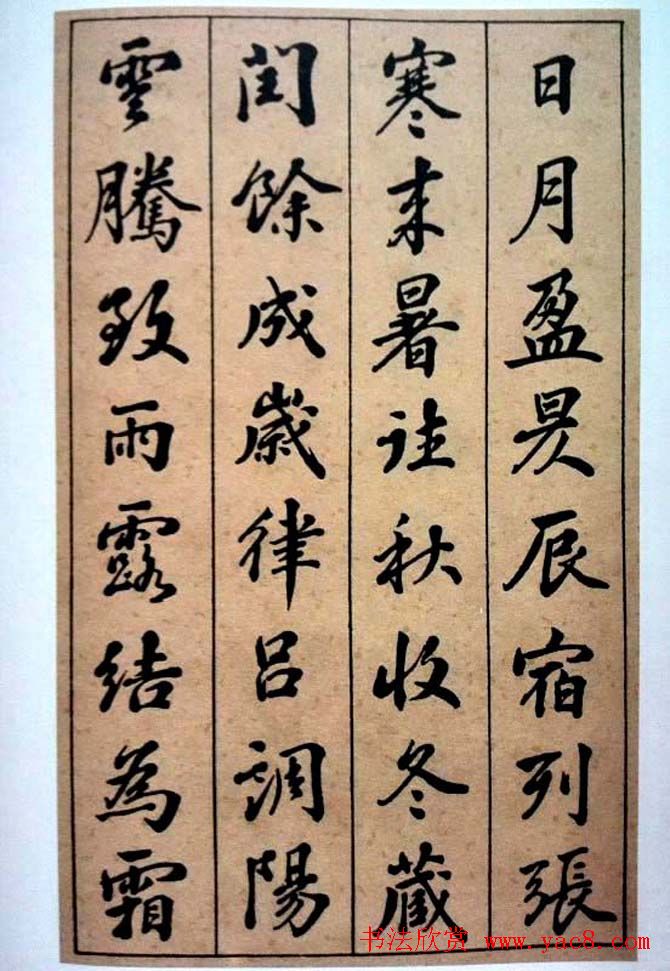 日月盈昃辰宿列張
寒来暑往秋收冬藏
閏餘成歲律吕調陽
雲騰致雨露結為霜
书法欣赏 www.yac8.com